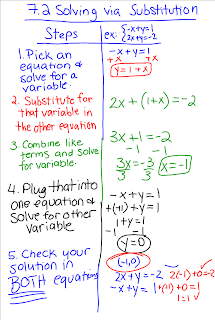 7.2 Solving via Substitution
Steps
ex: { -x+y=1
2x+y=-2
1. Pick an
equation &
solve for a
variable.
-x+y=1
+x +x
y=1+x
2. Substitute for
that variable in
the other equation
2x+(1+x)=-2
3. Combine like
terms and solve
for variable.
3x+1=-2
-1 -1
3x=-3
3 3
x=-1
4. Plug that into
one equation &
solve for other
variable
-x+y=1
+(+1)+y=1
1+y=1
-1 -1
y=0
5. Check your
solution in
BOTH equations
(-1,0)
2x+y=-2 2(-1)+0=-2
-x+y=1 1+(+1)+0=1
1=1✓